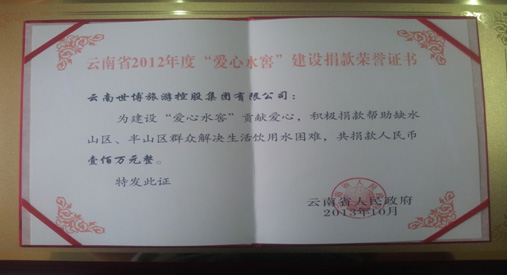 云南省2012年度“爱心水窖”建设捐款荣誉证书
云南世博旅游控股集团有限公司：
为建设“爱心水窖”贡献爱心，积极捐款帮助缺水
山区、半山区群众解决生活饮用水困难，共捐款人民币
壹佰万元整。
特发此证
云南省人民政府
2013年10月